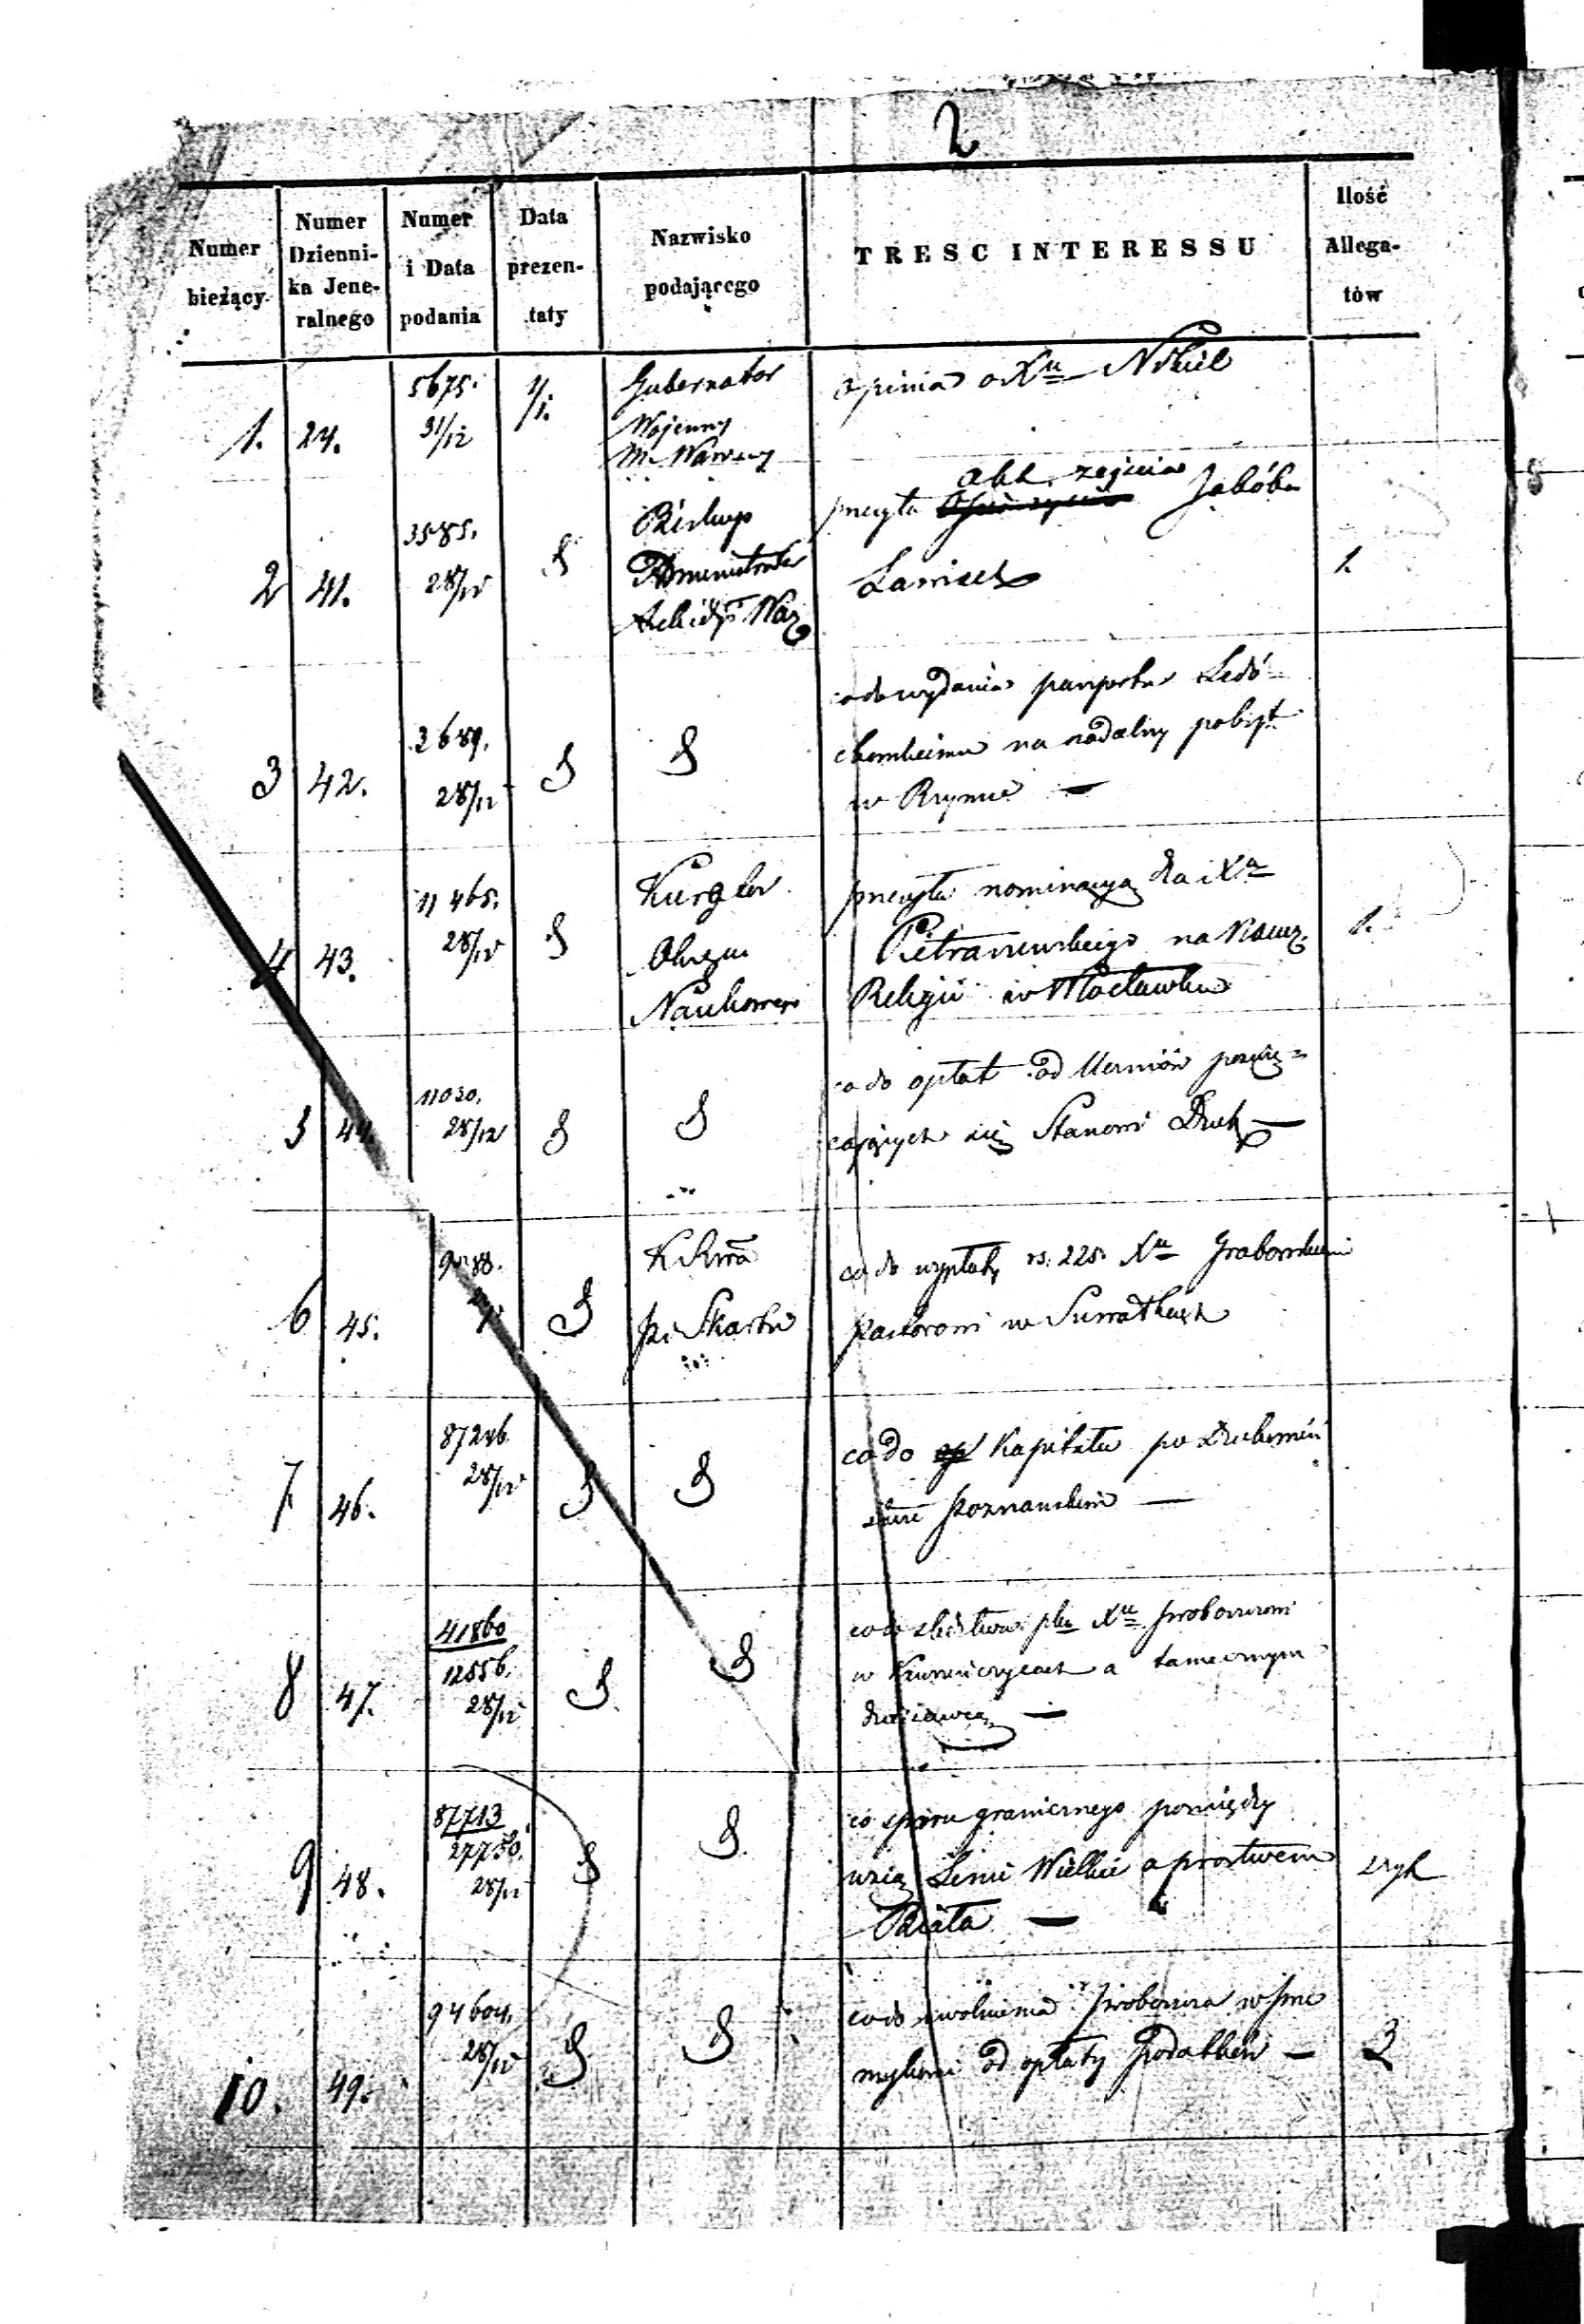 2
Numer bieżący
Numer Dzienni- ka Jene- ralnego
Numer i Data podania
Data prezen- taty
Nazwisko podającego
TRESC INTERESSU
Ilość Allega- tów
1. 24. 5675. 31/12 1/1.
Gubernator
Wojenny
M. Warszawy
opinia o Xu
2 41. 3585. 28/12
Biskup
Administrator
Archidyi Warz
przesyła akt zejścia Jakóba
1.
3 42. 2689. 28/12
co do wydania paszportu Ledó-
chowskiemu na nadalny pobyt
w Rzymie —
4 43. 11465. 28/12
Kurator
Okręgu
Naukowego
przesyła nominacyą dla Xa
Pietraszewskiego na Naucz.
Religii w Włocławku
1.
5 44. 11020. 28/12
co do opłat od Uczniów poświę=
cających się Stanowi Duch —
6 45.
K R
Skarbu
co do wypłaty rs. 225. Xu Grabowskiemu
pastorowi w Suwałkach
7 46. 87246. 28/12
co do Kapitału po Duchowień
stwie poznańskim —
8 47. 41860 12556. 28/12
Xu proboszczowi
w a tamecznym
dzierżawcą —
9 48. 87713 27750. 28/12
co sporu granicznego pomiędzy
wsią Wielkie a probstwem
Biała —
10. 49. 94604. 28/12
co do uwolnienia proboszcza
od opłaty podatków — 3